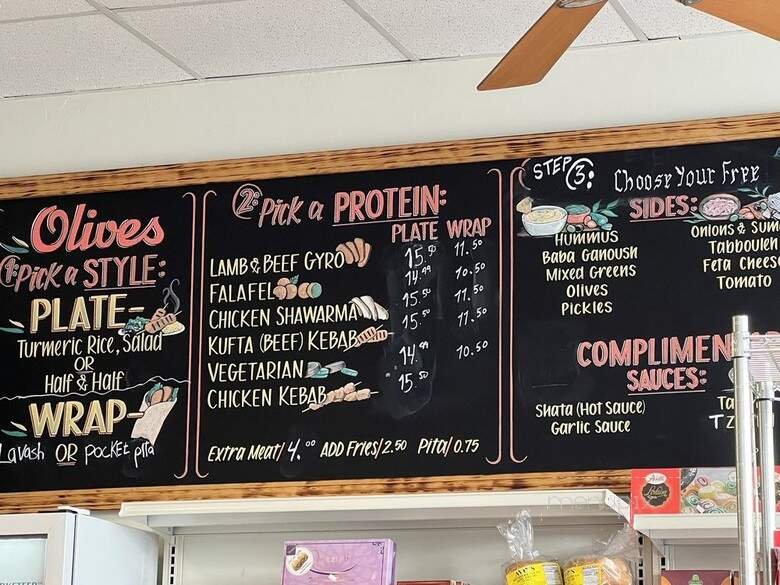 Olives
1: Pick a STYLE:
PLATE-
Turmeric Rice, Salad
OR
Half & Half
WRAP-
Lavash OR pocket pita
2: Pick a PROTEIN:
PLATE WRAP
LAMB & BEEF GYRO 15.50 11.50
FALAFEL 14.99 10.50
CHICKEN SHAWARMA 15.50 11.50
KUFTA (BEEF) KEBAB 15.50 11.50
VEGETARIAN 14.99 10.50
CHICKEN KEBAB 15.50
Extra Meat/4.00 ADD Fries/2.50 Pita/0.75
STEP 3: Choose Your Free
SIDES:
HUMMUS
Baba Ganoush
Mixed Greens
Olives
Pickles
Onions &
Tabbouleh
Feta Cheese
Tomato
COMPLIMEN
SAUCES:
Shata (Hot Sauce)
Garlic Sauce
Ta
TZ